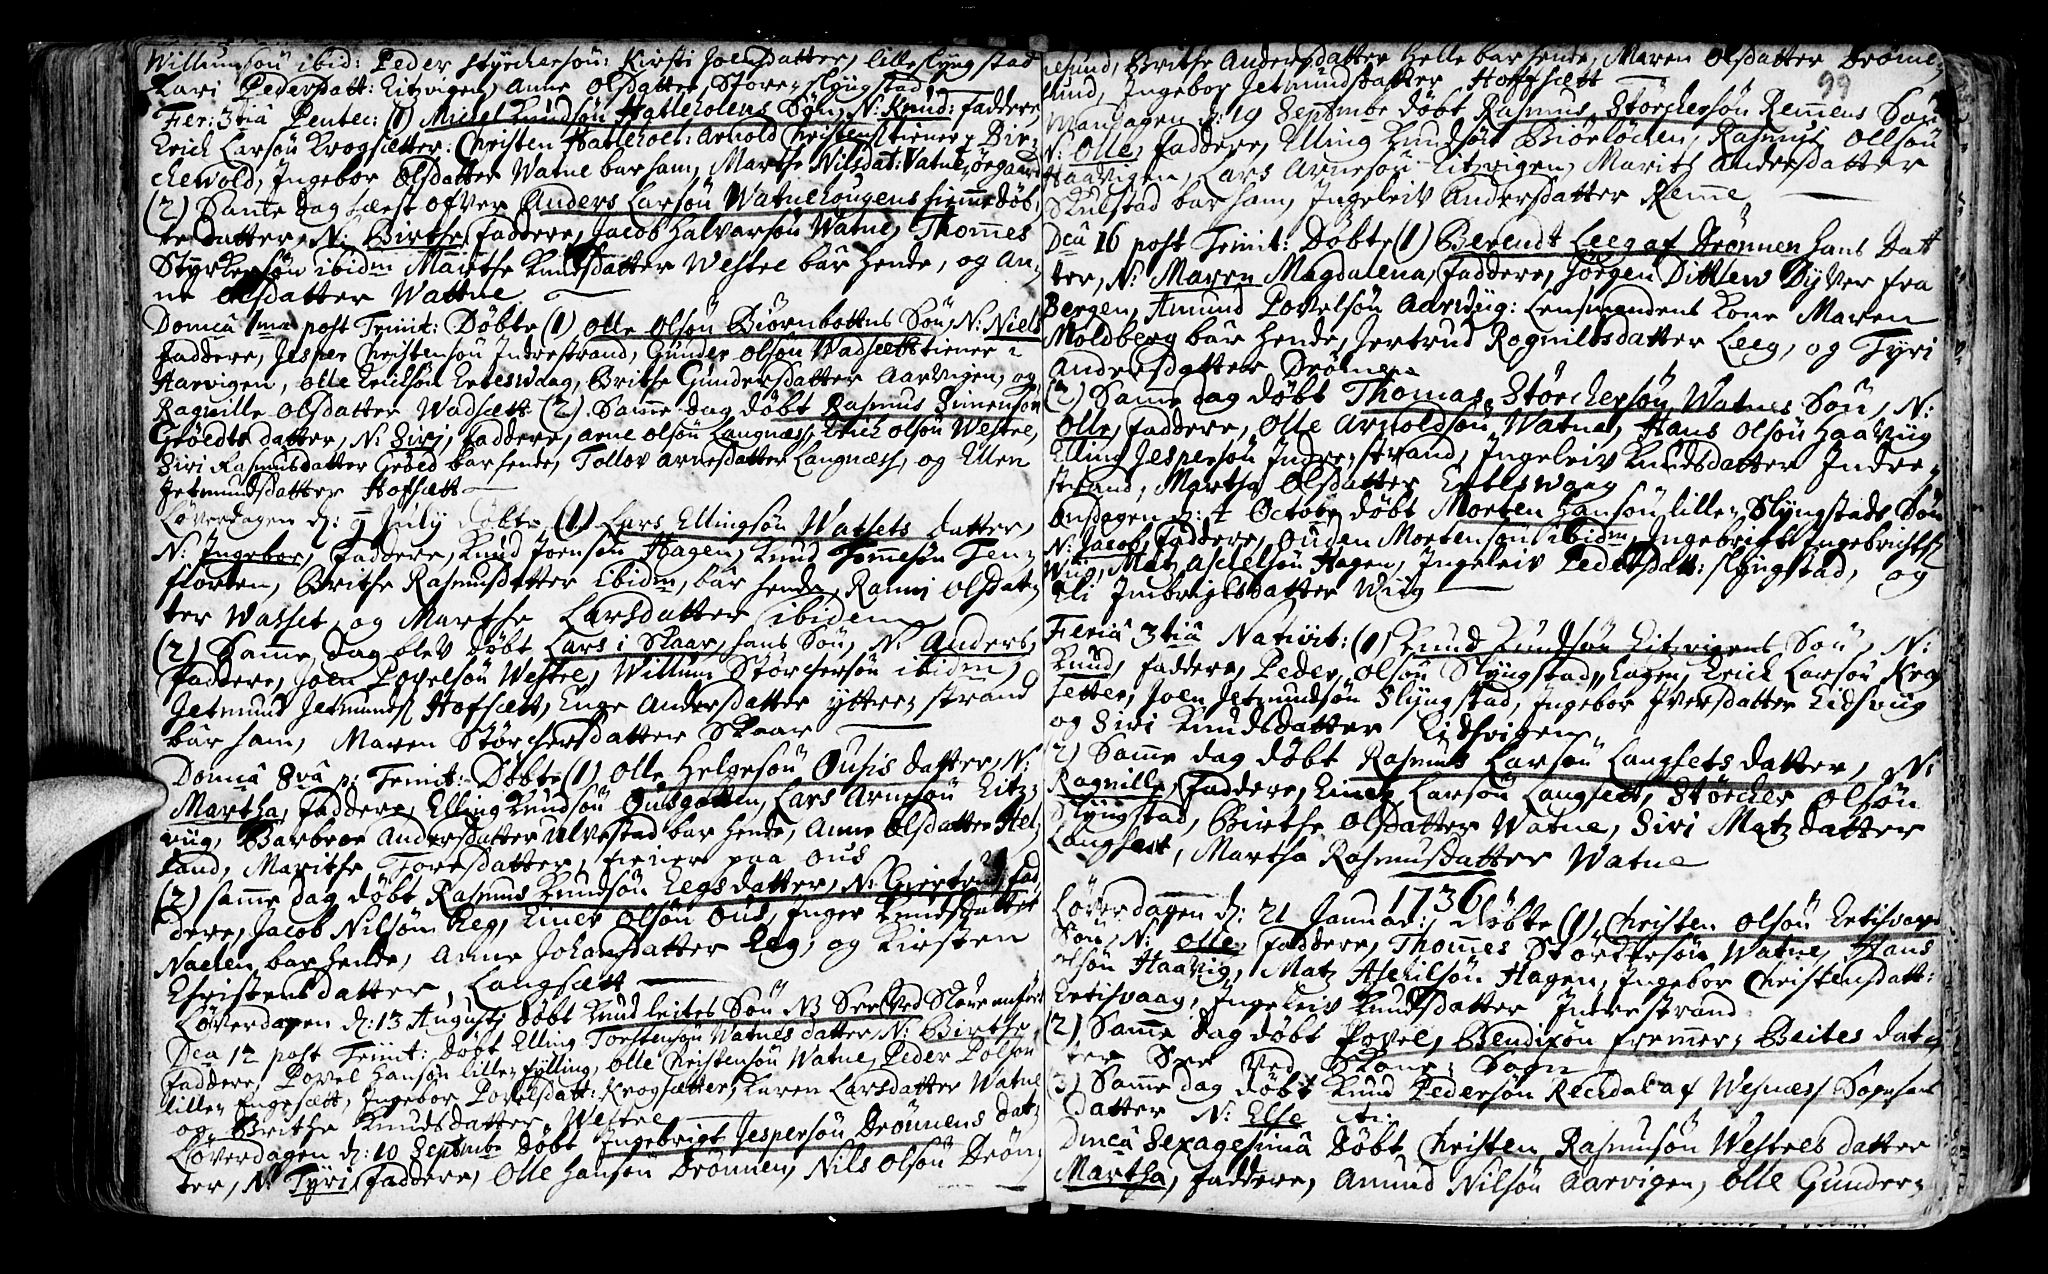 Willumsøn ibid: Peder Styrchersøn: Kirsti Joensdatter, lille Slyngstad
Kari Pedersdatt: Eitzvigen, Anne Olsdatter, Store-Slyngstad
Fer: 3tiâ Pentec: (1) Michel Knudsøn Hatleholens Søn, N: Knud: Faddere,
Erich Larsøn Krogsætter: Christen Hatlehoel: Arnold Christensøn tiener Bir-
chevold, Ingebor Olsdatter Watne bar ham, Marthe Nilsdat: Vatne,
(2) Samme dag læst ofver Anders Larsøn Watnehougens hiemmedøb-
te datter, N: Birthe, Faddere, Jacob Halvarsøn Watne, Thommes
Styrkersøn ibidm Marthe Knudsdatter Westre bar hende, og An-
ne Olsdatter Wattne
Domcâ 1ma post Trinit: Døbte (1) Olle Olsøn Biørnbottns Søn, N: Niels
Faddere, Jesper Christensøn Indrestrand, Gunder Olsøn Wadsætt tiener i
Aarvigen, Olle Erichsøn Ertesvaag, Brithe Gundersdatter Aarvigen, og
Ragnille Olsdatter Wadsætt (2) Samme dag døbt Rasmus Simensøn
Grøedts datter, N: Siri, Faddere, Arne Olsøn Langnæss, Erich Olsøn Westre,
Siri Rasmusdatter Grøed bar hende, Tollov Arnesdatter Langnæss, og Ellen
Jetmundsdatter Hofsætt
Løverdagen d: 9 July døbte (1) Lars Ellingsøn Watsets datter,
N: Ingebor, Faddere, Knud Joensøn Hagen, Knud Tommesøn Ten-
fiorden, Brithe Rasmusdatter ibidm, bar hende, Ranni Olsdat-
ter Wasset, og Marthe Larsdatter ibidem
(2) Samme dag blev døbt Lars i Skaar, hans Søn, N: Anders,
Faddere, Joen Povelsøn Westre, Willum Størchersøn ibidm,
Jetmund Jetmunds: Hofsætt, Inge Andersdatter yttre-strand
bar ham, Maren Størchersdatter Skaar
Domcâ 8vâ p: Trinit: Døbte (1) Olle Helgesøn Ousis datter, N:
Martha, Faddere, Elling Knudsøn Ousgotten, Lars Arnesøn Eitz-
viig, Barbroe Andersdatter Ulvestad bar hende, Anne Olsdatter Hel-
land, Marithe Toresdatter, tiener paa Ous
(2) samme dag døbt Rasmus Knudsøn Legs datter, N: Giertrud, Fad-
dere, Jacob Nilsøn Leg, Einer Olsøn Ous, Inger Knudsdatter
Nacken bar hende, Anne Johansdatter Leg, og Kirsten
Christensdatter, Langsætt
Løverdagen d: 13 Augustj døbt Knud Leites Søn NB See Ved Skoue
Dca 12 post Trinit: døbt Elling Torstensøn Watnes datter N: Birthe,
Faddere, Povel Hansøn lille-fylling, Olle Christensøn Watne, Peder Polsøn
lille-Engesætt, Ingebor Povelsdatt: Krogsætter, Karen Larsdatter Watne
og Brithe Knudsdatter Westre
Løverdagen d: 10 Septembr døbt Ingebrigt Jespersøn Drønnens dat-
ter, N: Tyri, Faddere, Olle Hansøn Drønnen, Nils Olsøn Drøn-
nesund, Brithe Andersdatter Helle bar hende, Maren Olsdatter Drønne-
sund, Ingebor Jetmundsdatter Hoffsætt
99
Mandagen d: 19 Septembr døbt Rasmus Størchersøn Remens Søn
N: Olle, Faddere, Elling Knudsøn Biørløchen, Rasmus Ollsøn
Haavigen, Lars Arnesøn Eitzvigen, Marith Andersdatter
Skulstad bar ham, Ingeleiv Andersdatter Remme
Dcâ 16 post Trinit: Døbte (1) Berendt Leeg af Drønnen hans Dat-
ter, N: Maren Magdalena, Faddere, Jørgen Ditlew Dyver fra
Bergen, Amund Povelsøn Aarviig: Lensmandens Kone Maren
Moldberg bar hende, Jertrud Rognildsdatter Leeg, og Tyri
Andersdatter Drønnen
(2) Samme dag døbt Thomas Størchersøn Watnes Søn, N:
Olle, Faddere, Olle Arnoldsøn Watne, Hans Olsøn Haaviig
Elling Jespersøn Indre-strand, Ingeleiv Knudsdatter Indre-
strand, Martha Olsdatter Ertesvaag
Onsdagen d: 4 Octobr døbt Morten Hansøn lille-Slyngstads Søn
N: Jacob, Faddere, Ouden Mortensøn ibidm, Ingebricht Ingebrichts:
Wiig, Matz Aschelsøn Hagen, Ingeleiv Pedersdatt: Slyngstad, og
Eli Imbrigtsdatter Wiig
Feriâ 3tiâ Nativit: (1) Knud Knudsøn Eitzvigens Søn, N:
Knud, Faddere, Peder Olsøn Slyngstad, Erich Larsøn Krog-
setter, Joen Jetmundsøn Slyngstad, Ingebor Iversdatter Eidsviig
og Siri Knudsdatter Eidsvigen
2) Samme dag døbt Rasmus Larsøn Langsets datter, N:
Ragnille, Faddere, Einer Larsøn Langsætt, Størcher Olsøn
Slyngstad, Birthe Olsdatter Watne, Siri Matzdatter
Langsætt, Martha Rasmusdatter Watne
1736
Løverdagen d: 21 Januar: døbte (1) Christen Olsøn Ertisvaags
Søn, N: Olle, Faddere, Thommes Størkersøn Watne, Hans
Olsøn Haavig, Matz Aschilsøn Hagen, Ingebor Christensdatt:
Ertisvaag, Ingeleiv Knudsdatter Inderstrand
2) Samme dag døbt Povel Bendixøn fremmer-Beites dat-
ter See Ved Skoue Sogn
3) Samme dag døbt Knud Pedersøn Reesdal af Wesnæss Sogn hans
datter N: Else etc
Dmcâ Sexagesimâ Døbt Christen Rasmusøn Westres datter
Martha, Faddere, Amund Nilsøn Aarvigen, Olle Gunder-